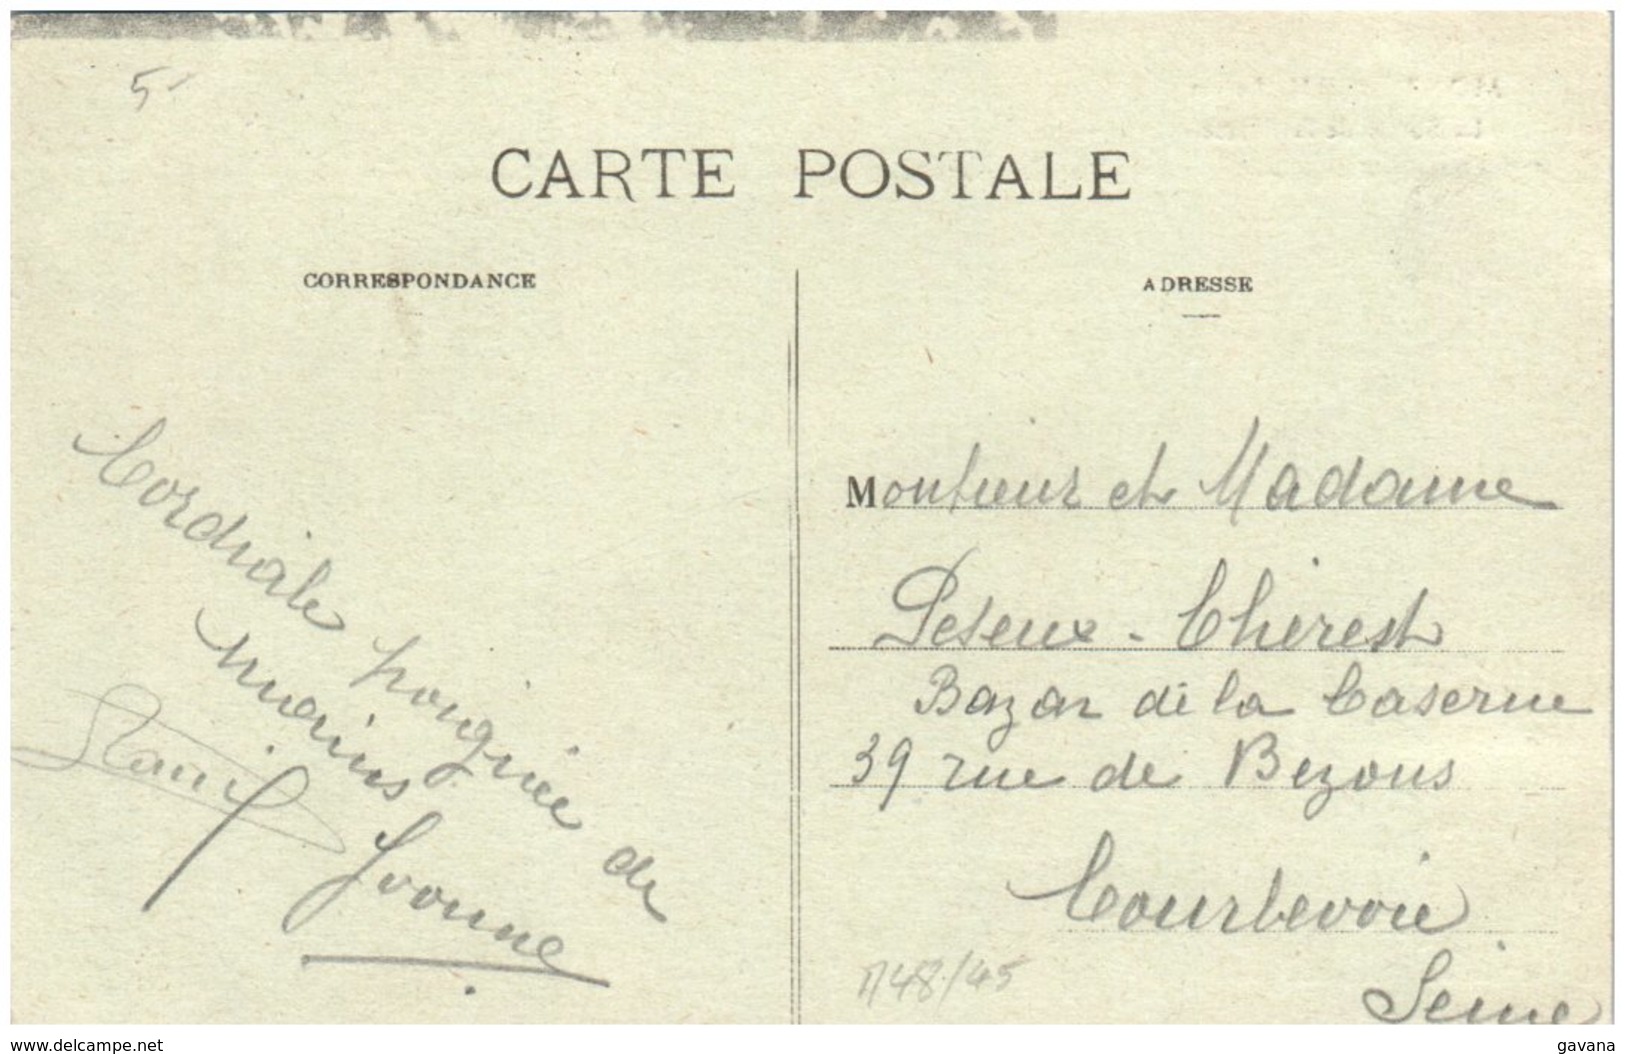 5
CARTE POSTALE
CORRESPONDANCE
ADRESSE
Cordiale poignée de
mains
Yvonne
Monsieur et Madame
Peseux - Thérest
Bazar de la Caserne
39 rue de Bezons
Courbevoie
Seine
48/45
www.delcampe.net
gavana